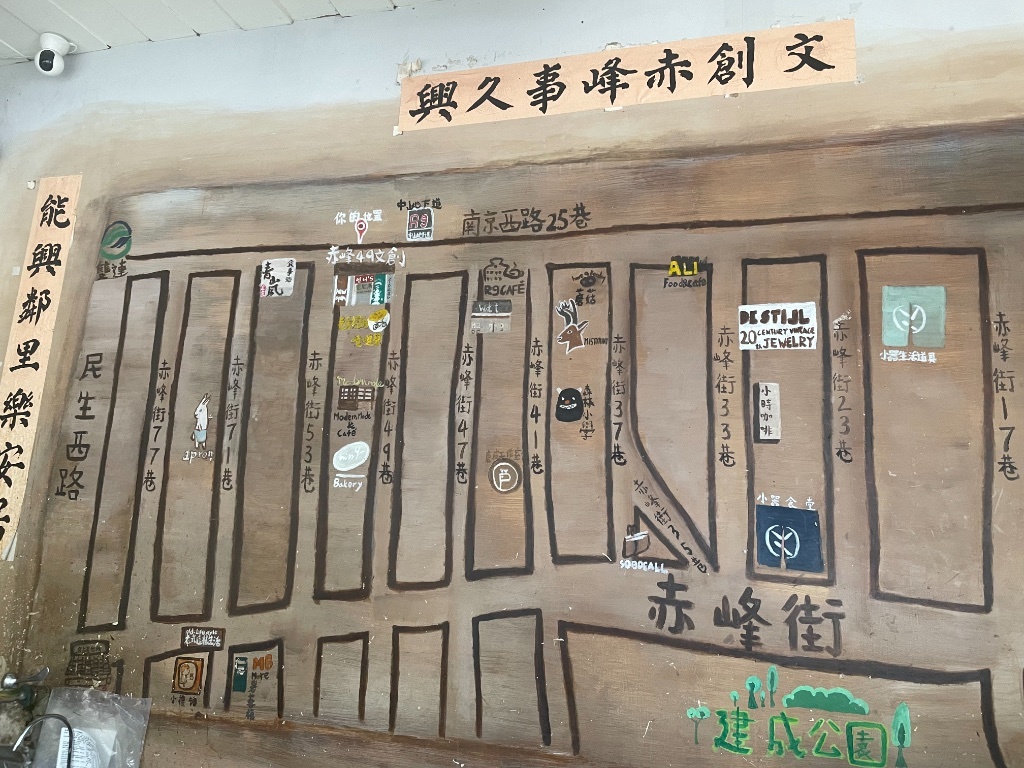 文創赤峰事久興
能興鄰里樂安居
你的位置
赤峰49文創
南京西路25巷
雙連
民生西路
赤峰街77巷
赤峰街71巷
赤峰街53巷
赤峰街49巷
赤峰街47巷
赤峰街41巷
赤峰街37巷
赤峰街35巷
赤峰街33巷
赤峰街23巷
赤峰街17巷
apron
Modern Mode
&
Café
Bakery
R9CAFÉ
ALI
Food&Cafe
DE STIJL
20 CENTURY VINTAGE
JEWELRY
小時咖啡
小器食堂
小器生活道具
赤峰街
建成公園